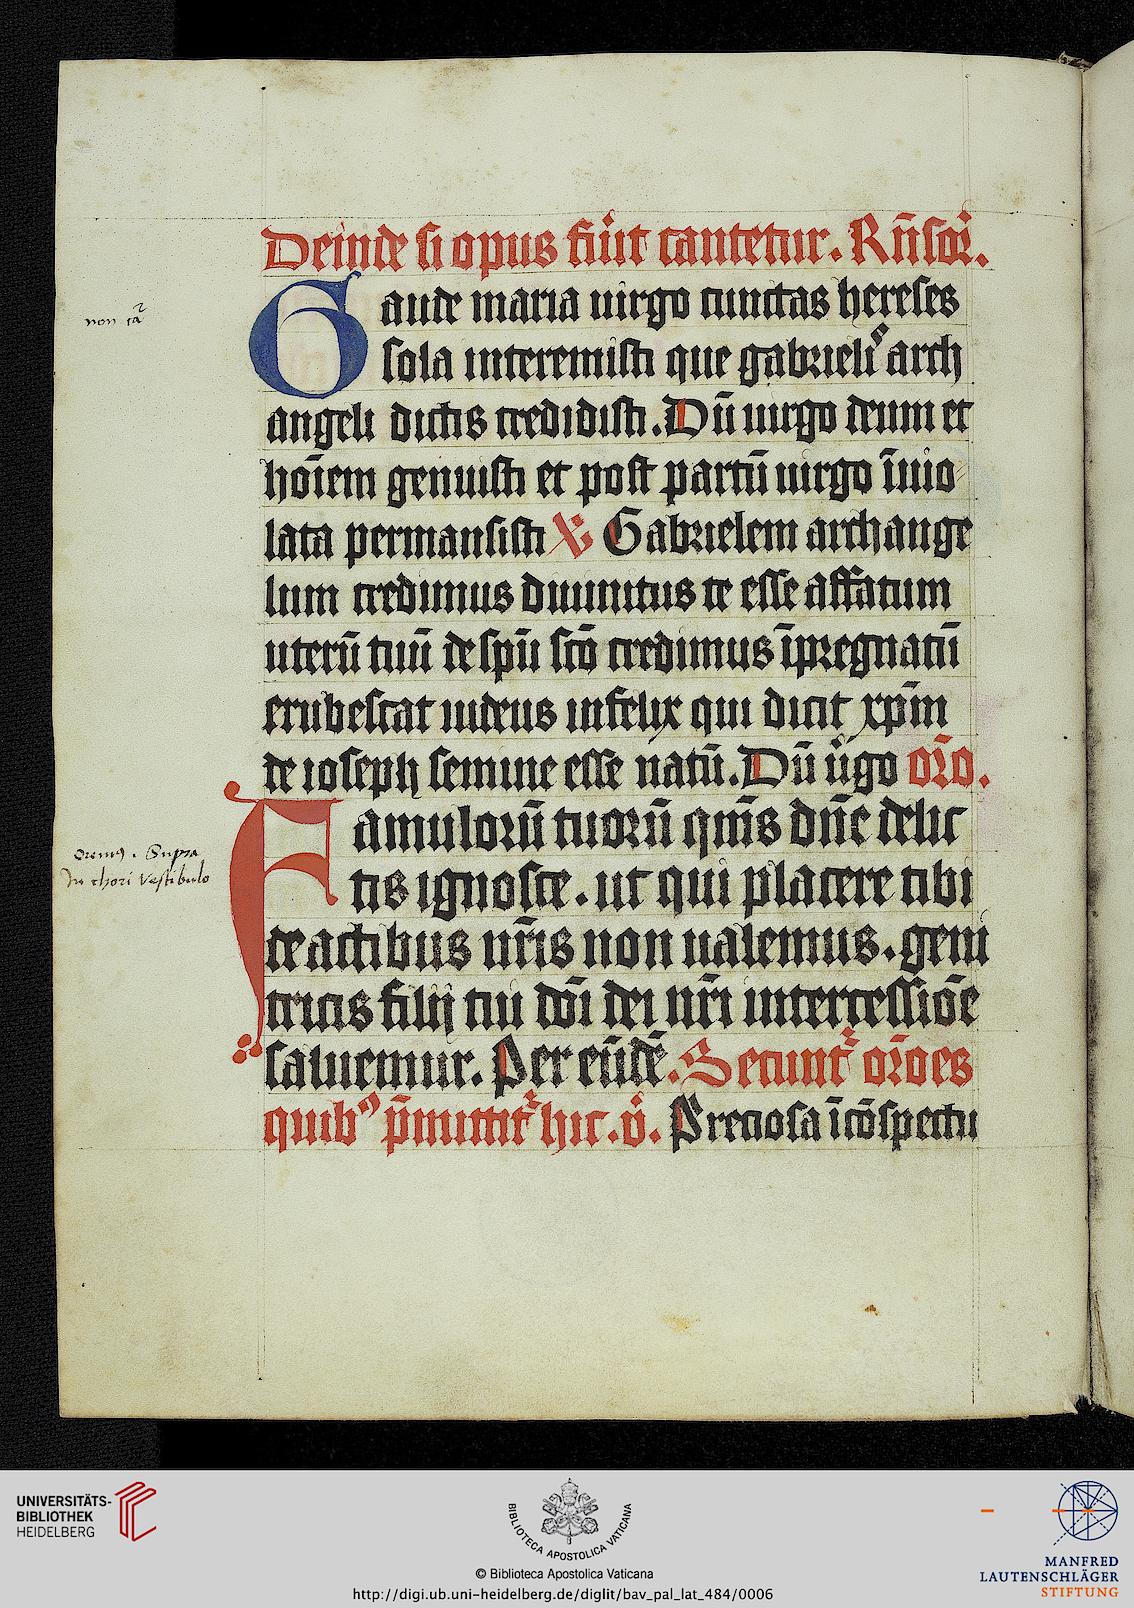 Deinde si opus fu̾it cantetur. Rn̄soꝛ̾.
Gaude maria uirgo cunctas hereses
sola interemisti que gabrieliꝰ arch
angeli dictis credidisti. Dū uirgo deum et
hoīem genuisti et post partū uirgo īuio
lata permansisti ℣ Gabrielem archange
lum credimus diuinitus te esse affatum
uterū tuū de spū scō credimus īpregnatū
erubescat iudeus infelix qui dicit xp̄m
de ioseph semine esse natū. Dū u̾go oꝛ̄o.
Famuloꝛū tuoꝛū qm̄s dn̄e delic
tis ignosce. ut qui placere tibi
de actibus nr̄is non ualemus. geni
tricis filij tui dn̄i dei nr̄i intercessiōe
saluemur. Per eūdē. Secunt̾ oꝛ̄oes
quibꝰ p̄mittit̾ hic. v̾. Preciosa ī cōspectu
non ca᷑
Oremꝰ. Supra
In chori Vestibulo
UNIVERSITÄTS-
BIBLIOTHEK
HEIDELBERG
BIBLIOTECA APOSTOLICA VATICANA
© Biblioteca Apostolica Vaticana
http://digi.ub.uni-heidelberg.de/diglit/bav_pal_lat_484/0006
MANFRED
LAUTENSCHLÄGER
STIFTUNG